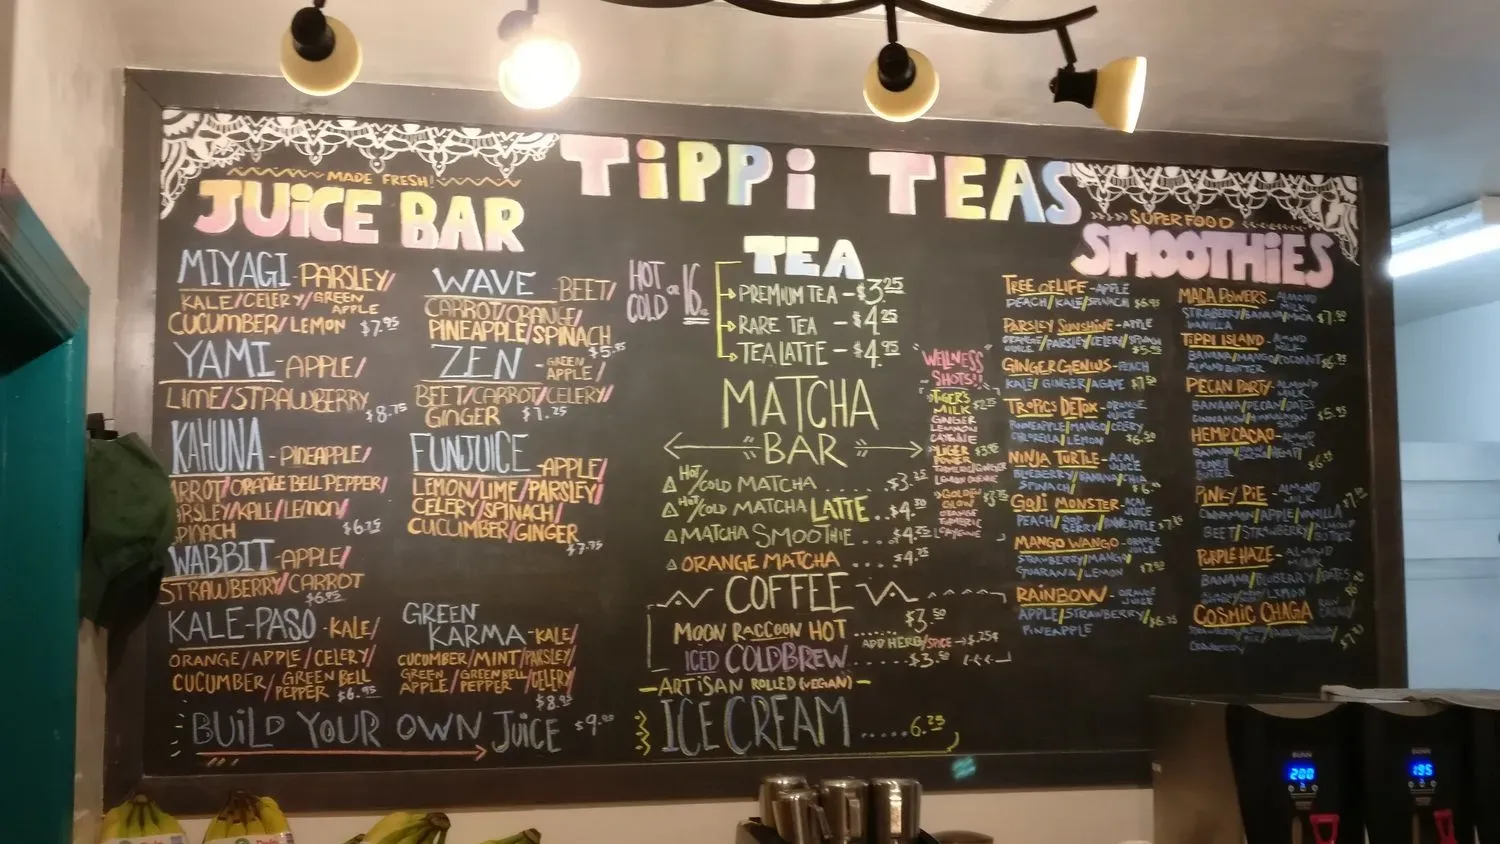 TiPPi TEAS
MADE FRESH!
JUiCE BAR
MIYAGI - PARSLEY/
KALE/CELERY/GREEN APPLE
CUCUMBER/LEMON $7.95
YAMI - APPLE/
LIME/STRAWBERRY $8.75
KAHUNA - PINEAPPLE/
ARROT/ORANGE BELL PEPPER/
ARSLEY/KALE/LEMON/
PINACH $6.75
WABBIT - APPLE/
STRAWBERRY/CARROT
$6.95
KALE-PASO - KALE/
ORANGE/APPLE/CELERY/
CUCUMBER/GREEN BELL PEPPER $6.95
WAVE - BEET/
CARROT/ORANGE/
PINEAPPLE/SPINACH
ZEN - GREEN APPLE/
BEET/CARROT/CELERY/
GINGER
FUNJUICE - APPLE/
LEMON/LIME/PARSLEY/
CELERY/SPINACH/
CUCUMBER/GINGER
$7.75
GREEN
KARMA - KALE/
CUCUMBER/MINT/PARSLEY/
GREEN APPLE/GREEN BELL PEPPER/CELERY
BUiLD YOUR OWN JUiCE
TEA
HOT OR COLD 16
PREMIUM TEA - $3.25
RARE TEA - $4.25
TEA LATTE - $4.95
MATCHA
BAR
HOT/COLD MATCHA
HOT/COLD MATCHA LATTE
MATCHA SMOOTHIE
ORANGE MATCHA
COFFEE
MOON RACCOON HOT ...... $3.50
ADD HERB/SPICE → $.25¢
ICED COLDBREW
ARTiSAN ROLLED (VEGAN)
ICE CREAM ..... 6.25
WELLNESS
SHOTS!!
TIGER'S
MILK
GINGER
SUPERFOOD
SMOOTHiES
TREE OF LIFE - APPLE
PEACH/KALE/SPINACH $6.95
PARSLEY SUNSHINE - APPLE
GINGER GENIUS - PEACH
KALE/GINGER/AGAVE
TROPICS DETOX - ORANGE JUICE
PINNEAPPLE/MANGO/CELERY
CHLORELLA/LEMON $6.50
NINJA TURTLE - ACAI JUICE
BLUEBERRY/BANANA/CHIA
SPINACH/
GOJI MONSTER - ACAI JUICE
MANGO WANGO - ORANGE JUICE
STRAWBERRY/MANGO/
GUARANA/LEMON $7.50
RAINBOW - ORANGE JUICE
APPLE/STRAWBERRY/
PINEAPPLE
MACA POWERS - ALMOND MILK
STRABERRY/BANANA/MACA
VANILLA $7.50
TIPPI ISLAND - ALMOND MILK
BANANA/MANGO/COCONUT
ALMOND BUTTER
PECAN PARTY - ALMOND MILK
BANANA/PECAN/DATES
$5.95
HEMP CACAO - ALMOND
PINKY PIE - ALMOND MILK
CINNAMON/APPLE/VANILLA
BEET/STRAWBERRY/ALMOND BUTTER
PURPLE HAZE - ALMOND MILK
BANANA/BLUBERRY/DATES
COSMIC CHAGA
BUNN
200
BUNN
195